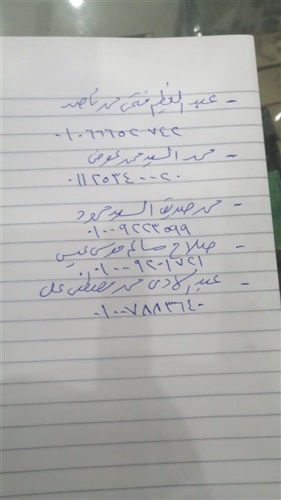 - عبد العظيم فتحي محمد ناصر
٠١٠٦٦٦٥٢٧٤٢
- محمد السيد محمد عوض
٠١١٢٥٣٤٠٠٢٠
- محمد صديق السيد محمود
٠١٠٠٩٢٢٣٥٩٩
- صلاح صالح موسى عيسى
٠١٠٠٩٢٠١٧٢١
- عبد الهادي محمد مصطفى علي
٠١٠٠٧٨٨٣٦٤٠